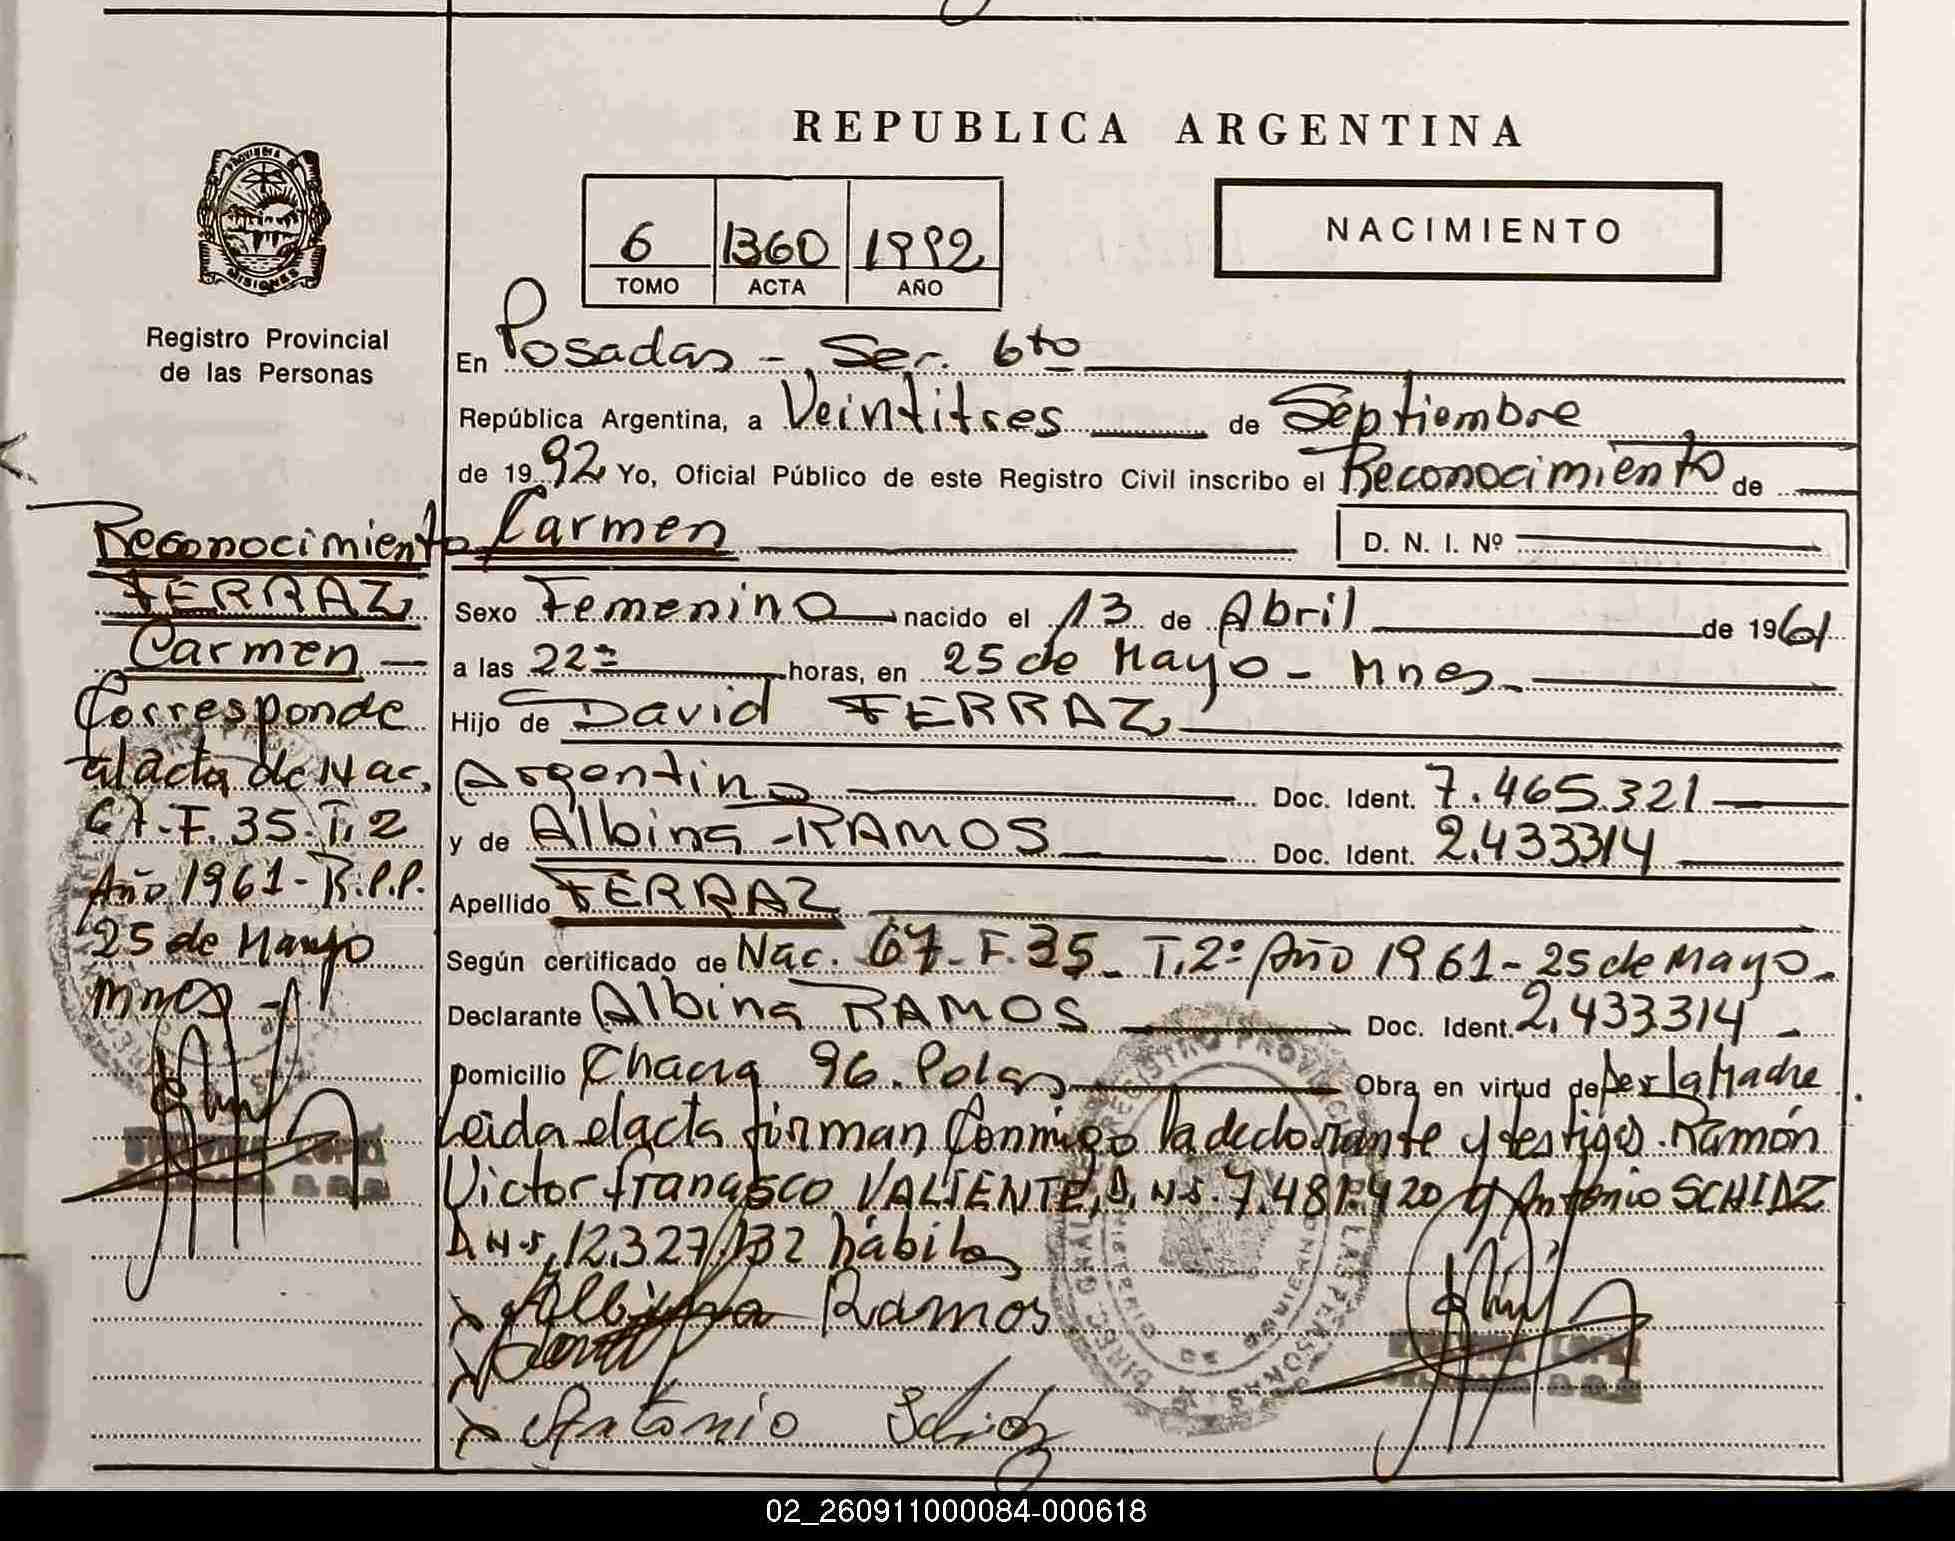 REPUBLICA ARGENTINA
PROVINCIA DE
MISIONES
Registro Provincial
de las Personas
6 1360 1992
TOMO ACTA AÑO
NACIMIENTO
En Posadas - Sec. 6to
República Argentina, a Veintitres de Septiembre
de 1992 Yo, Oficial Público de este Registro Civil inscribo el Reconocimiento de
Carmen D. N. I. Nº
Sexo Femenino nacido el 13 de Abril de 1961
a las 22 horas, en 25 de Mayo - Mnes.
Hijo de David FERRAZ
Argentino Doc. Ident. 7.465.321
y de Albina RAMOS Doc. Ident. 2.433314
Apellido FERRAZ
Según certificado de Nac. 67-F.35- T.2º Año 1961-25 de Mayo.
Declarante Albina RAMOS Doc. Ident. 2.433314
Domicilio Chacra 96. Pdas Obra en virtud de ser la Madre.
Leida el acta firman Conmigo la declarante y testigos. Ramón
Victor Francisco VALIENTE, D.N.I. 7.481.420 y Antonio SCHIAZ
D.N.I. 12.327.132 hábiles
Albina Ramos
Antonio
Reconocimiento
FERRAZ
Carmen
Corresponde
al acta de Nac.
67-F.35-T.2
Año 1961-R.P.P.
25 de Mayo
Mnes
02_260911000084-000618